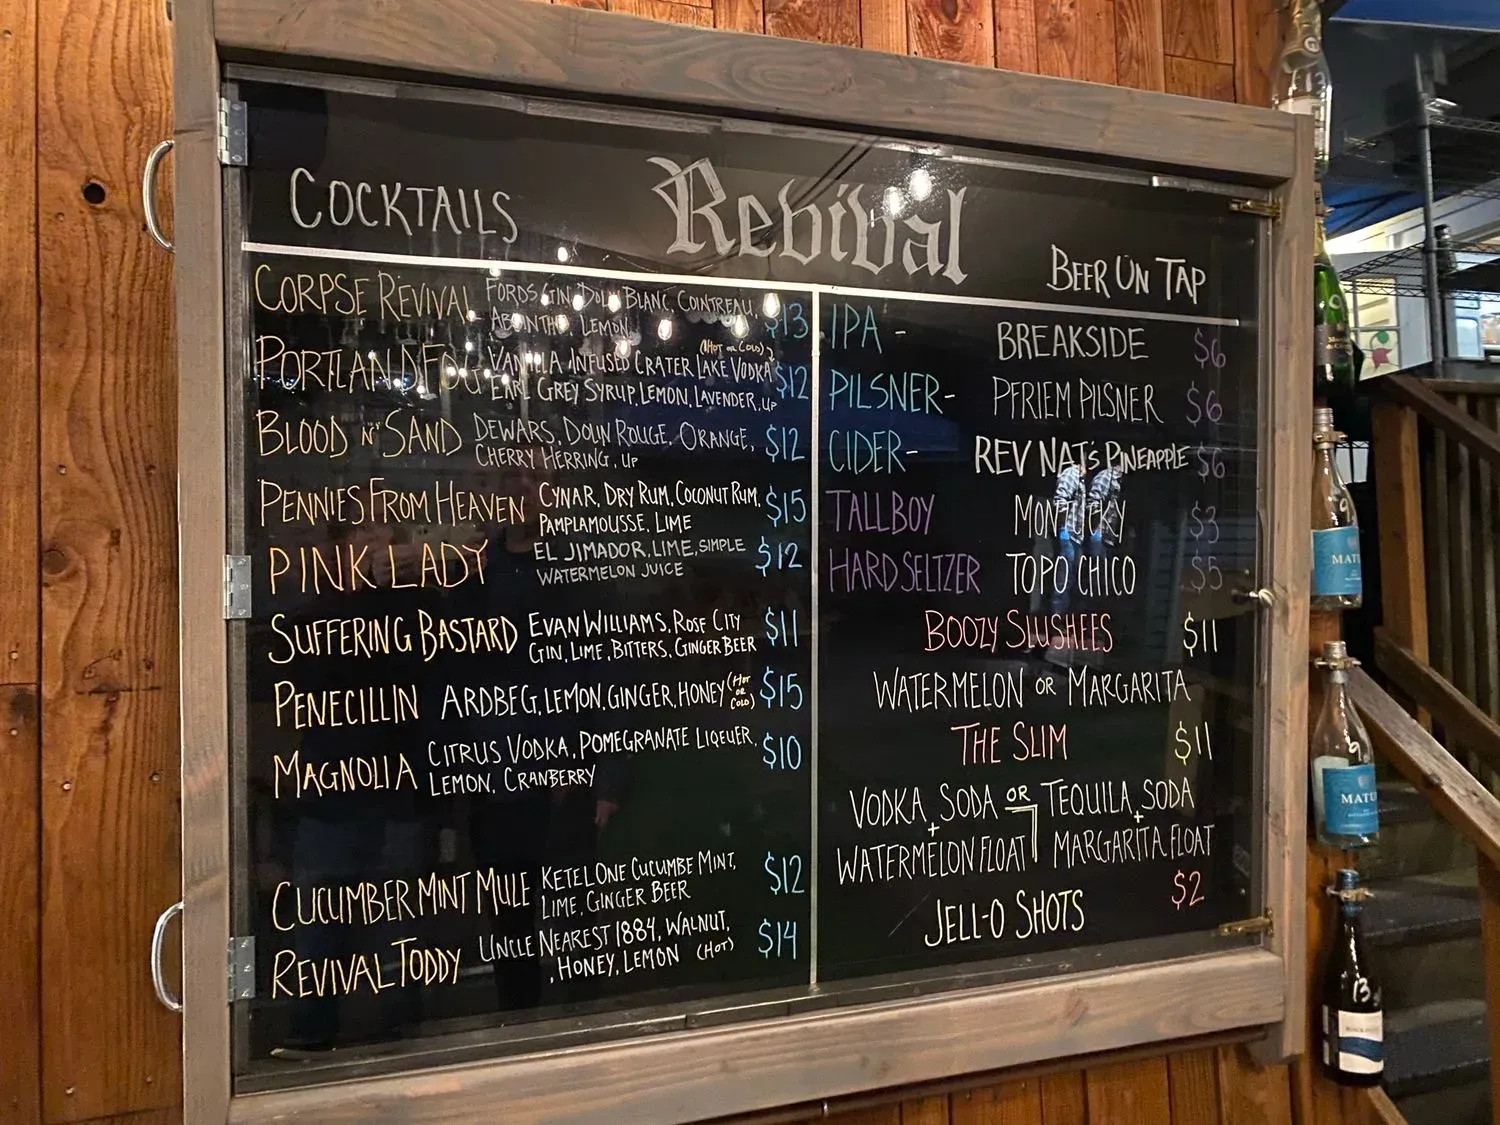 COCKTAILS
Revival
BEER ON TAP
CORPSE REVIVAL FORDS GIN, DOLIN BLANC, COINTREAU, $13
ABSINTHE, LEMON
PORTLAND FOG VANILLA INFUSED CRATER LAKE VODKA (HOT OR COLD) $12
EARL GREY SYRUP, LEMON, LAVENDER, UP
BLOOD N' SAND DEWARS, DOLIN ROUGE, ORANGE, $12
CHERRY HERRING, UP
PENNIES FROM HEAVEN CYNAR, DRY RUM, COCONUT RUM, $15
PAMPLAMOUSSE, LIME
PINK LADY EL JIMADOR, LIME, SIMPLE $12
WATERMELON JUICE
SUFFERING BASTARD EVAN WILLIAMS, ROSE CITY $11
GIN, LIME, BITTERS, GINGER BEER
PENECILLIN ARDBEG, LEMON, GINGER, HONEY (HOT OR COLD) $15
MAGNOLIA CITRUS VODKA, POMEGRANATE LIQEUER, $10
LEMON, CRANBERRY
CUCUMBER MINT MULE KETEL ONE CUCUMBE MINT, $12
LIME, GINGER BEER
REVIVAL TODDY UNCLE NEAREST 1884, WALNUT, $14
, HONEY, LEMON (HOT)
IPA - BREAKSIDE $6
PILSNER- PFRIEM PILSNER $6
CIDER- REV NAT'S PINEAPPLE $6
TALLBOY MONTUCKY $3
HARD SELTZER TOPO CHICO $5
BOOZY SLUSHEES $11
WATERMELON OR MARGARITA
THE SLIM $11
VODKA, SODA OR TEQUILA, SODA
+ +
WATERMELON FLOAT MARGARITA FLOAT
JELL-O SHOTS $2
13
9
MATU
9
MATU
13